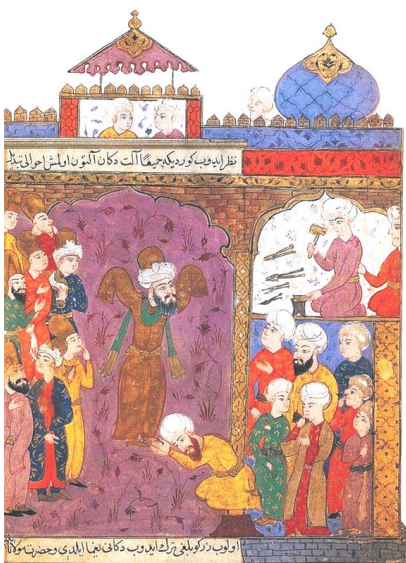 نظر ایدوب کوردیکه جمیعا آلت دکان آلتون اولمش احوالی
اولوب زرکوبلغی ترك ایدوب دکانی یغما ایلدی و حضرت مولانا